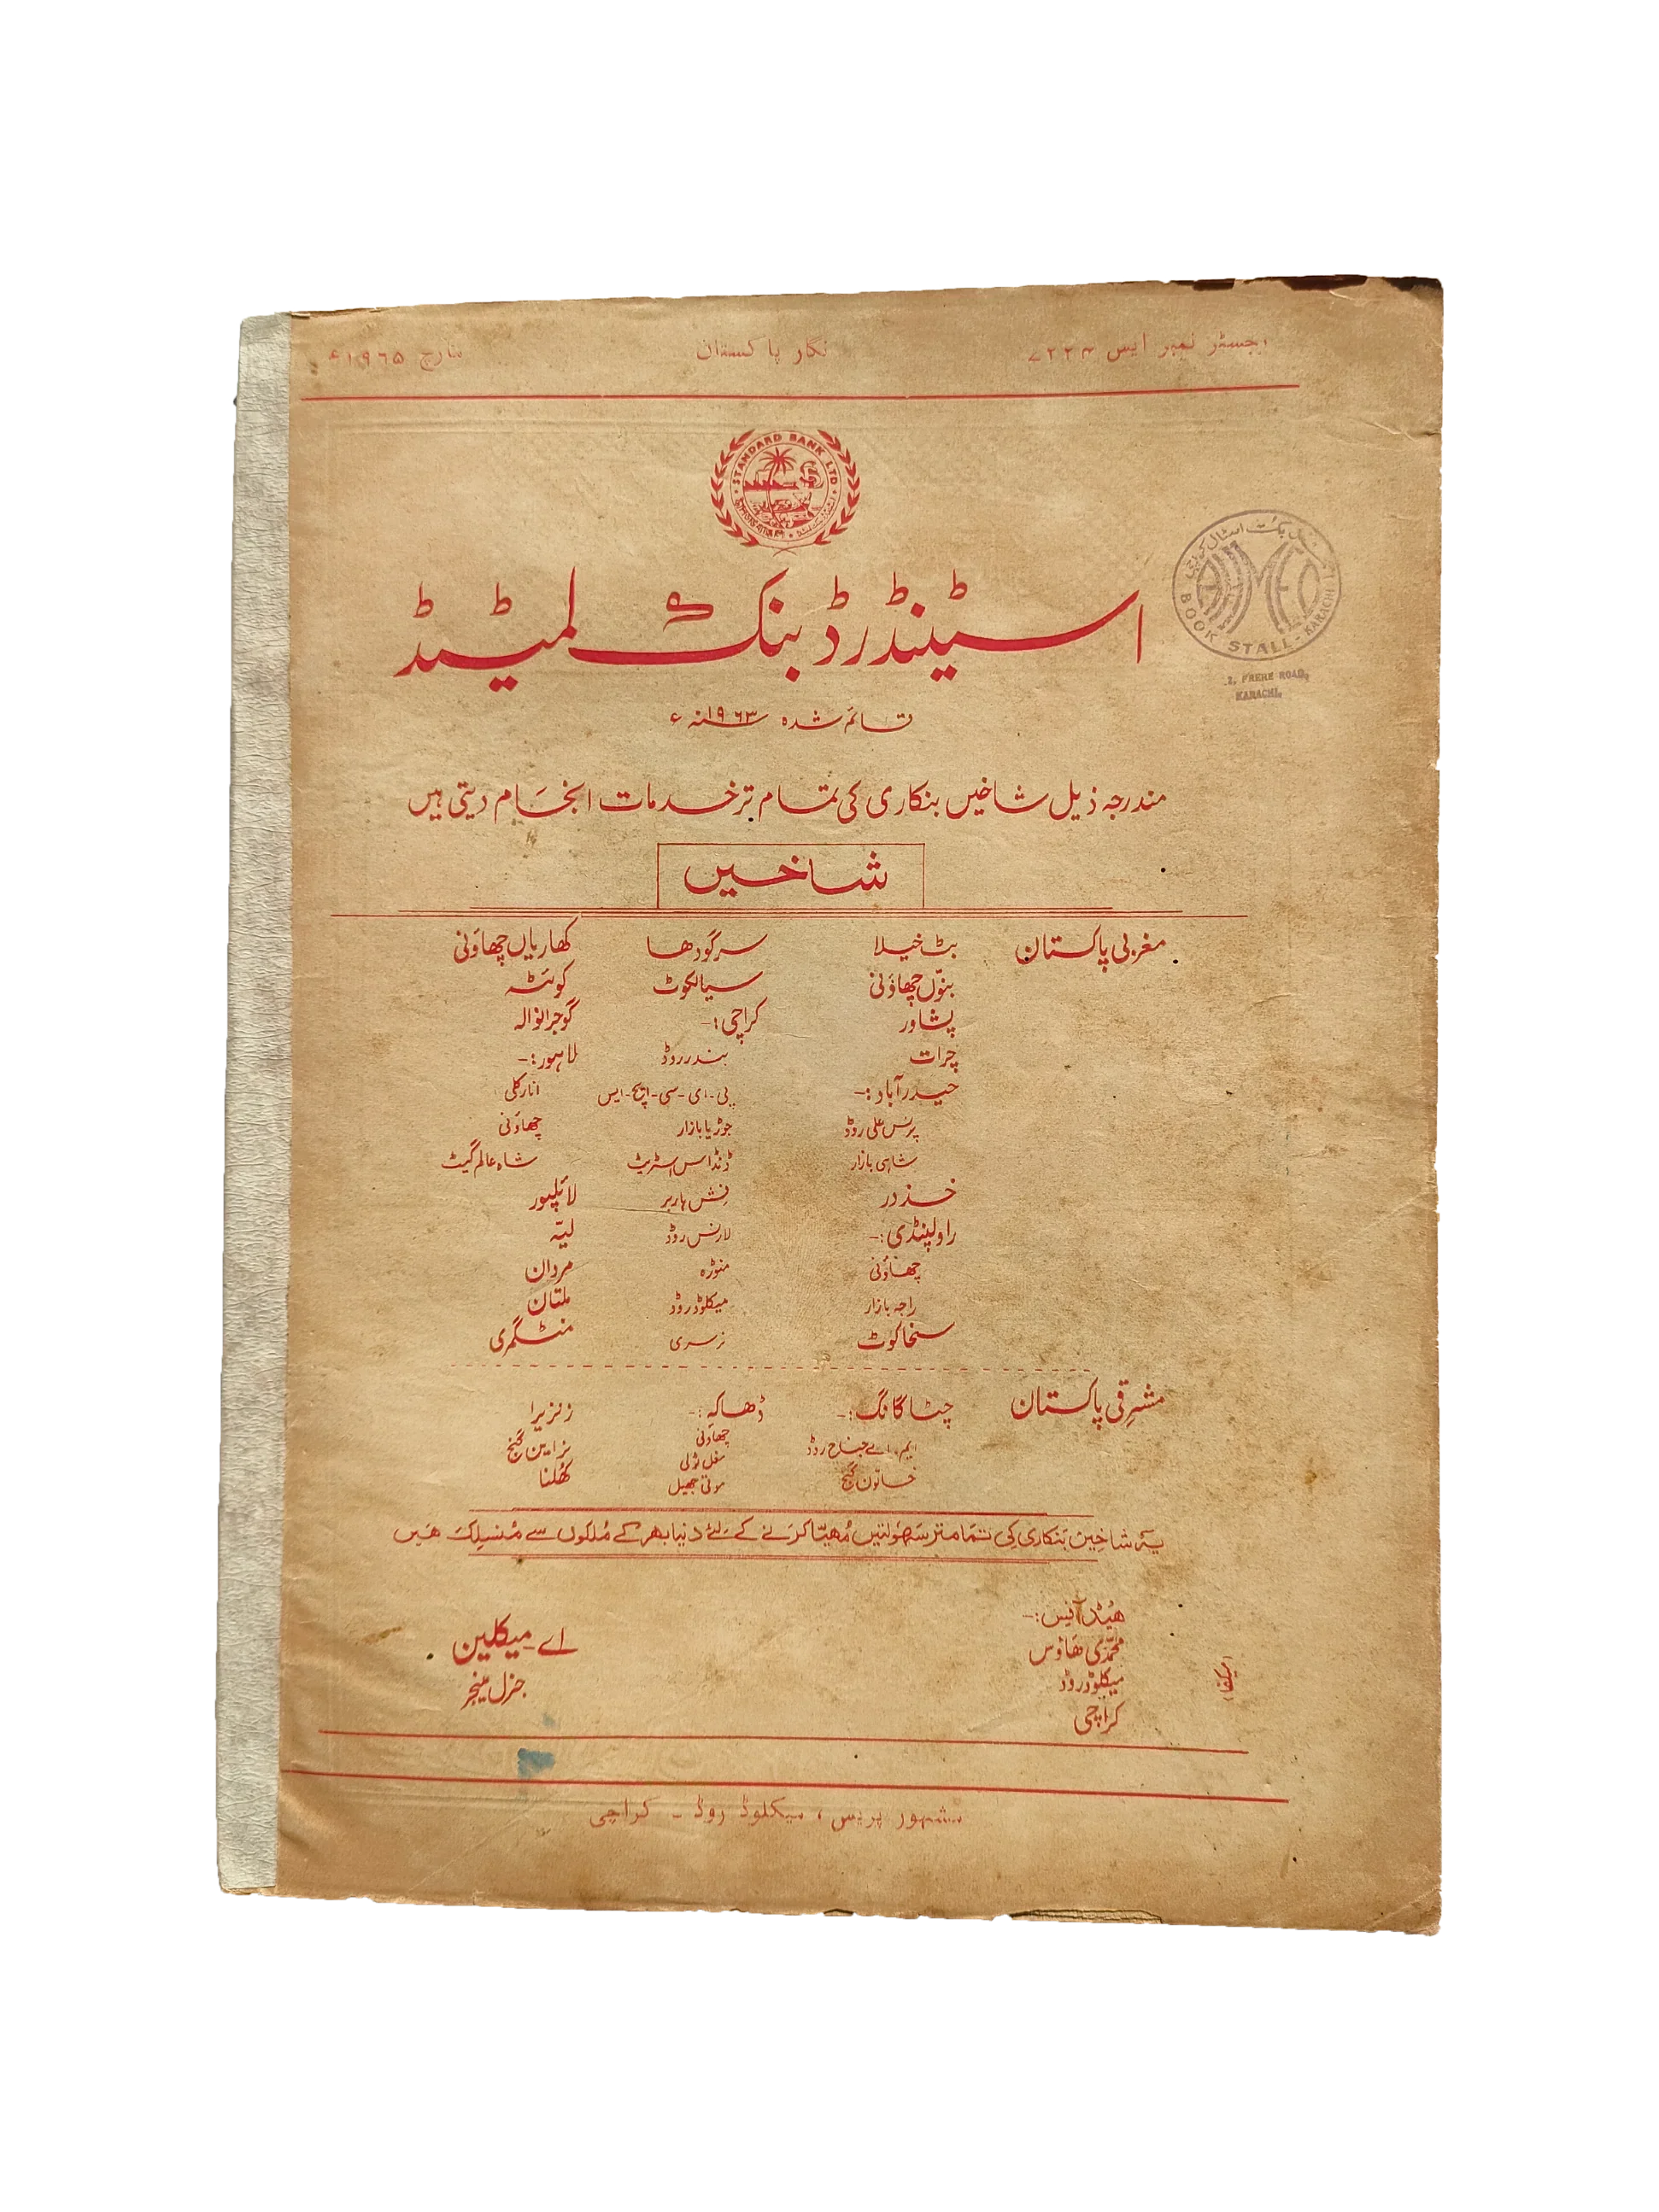 رجسٹر نمبر ایس ۷۲۲۴
نگار پاکستان
مارچ ۱۹۶۵ء
STANDARD BANK LTD
اسٹینڈرڈ بنک لمیٹیڈ
قائم شدہ ۱۹۶۳ سنہ ء
AHMED
BOOK STALL - KARACHI
2, FRERE ROAD,
KARACHI.
مندرجہ ذیل شاخیں بنکاری کی تمام تر خدمات انجام دیتی ہیں
شاخیں
مغربی پاکستان
بٹ خیلا
بنوں چھاؤنی
پشاور
چراٹ
حیدرآباد:-
پرنس علی روڈ
شاہی بازار
خذدر
راولپنڈی:-
چھاؤنی
راجہ بازار
سخاکوٹ
سرگودھا
سیالکوٹ
کراچی:-
بندر روڈ
پی-ای-سی-ایچ-ایس
جوڑیا بازار
ڈنڈاس اسٹریٹ
فش ہاربر
لارنس روڈ
منوڑہ
میکلوڈ روڈ
نرسری
کھاریاں چھاؤنی
کوئٹہ
گوجرانوالہ
لاہور:-
انارکلی
چھاؤنی
شاہ عالم گیٹ
لائلپور
لیہ
مردان
ملتان
منٹگمری
مشرقی پاکستان
چٹاگانگ:-
ایم، اے جناح روڈ
خاتون گنج
ڈھاکہ:-
چھاؤنی
مغل ٹولی
موتی جھیل
زنزیرا
نراین گنج
کھلنا
یہ شاخیں بنکاری کی تمامتر سہولتیں مہیا کرنے کے لئے دنیا بھر کے ملکوں سے منسلک ھیں
ھیڈ آفس:-
محمدی ھاؤس
میکلوڈ روڈ
کراچی
اے-میکلین
جنرل مینجر
مشہور پریس، میکلوڈ روڈ - کراچی